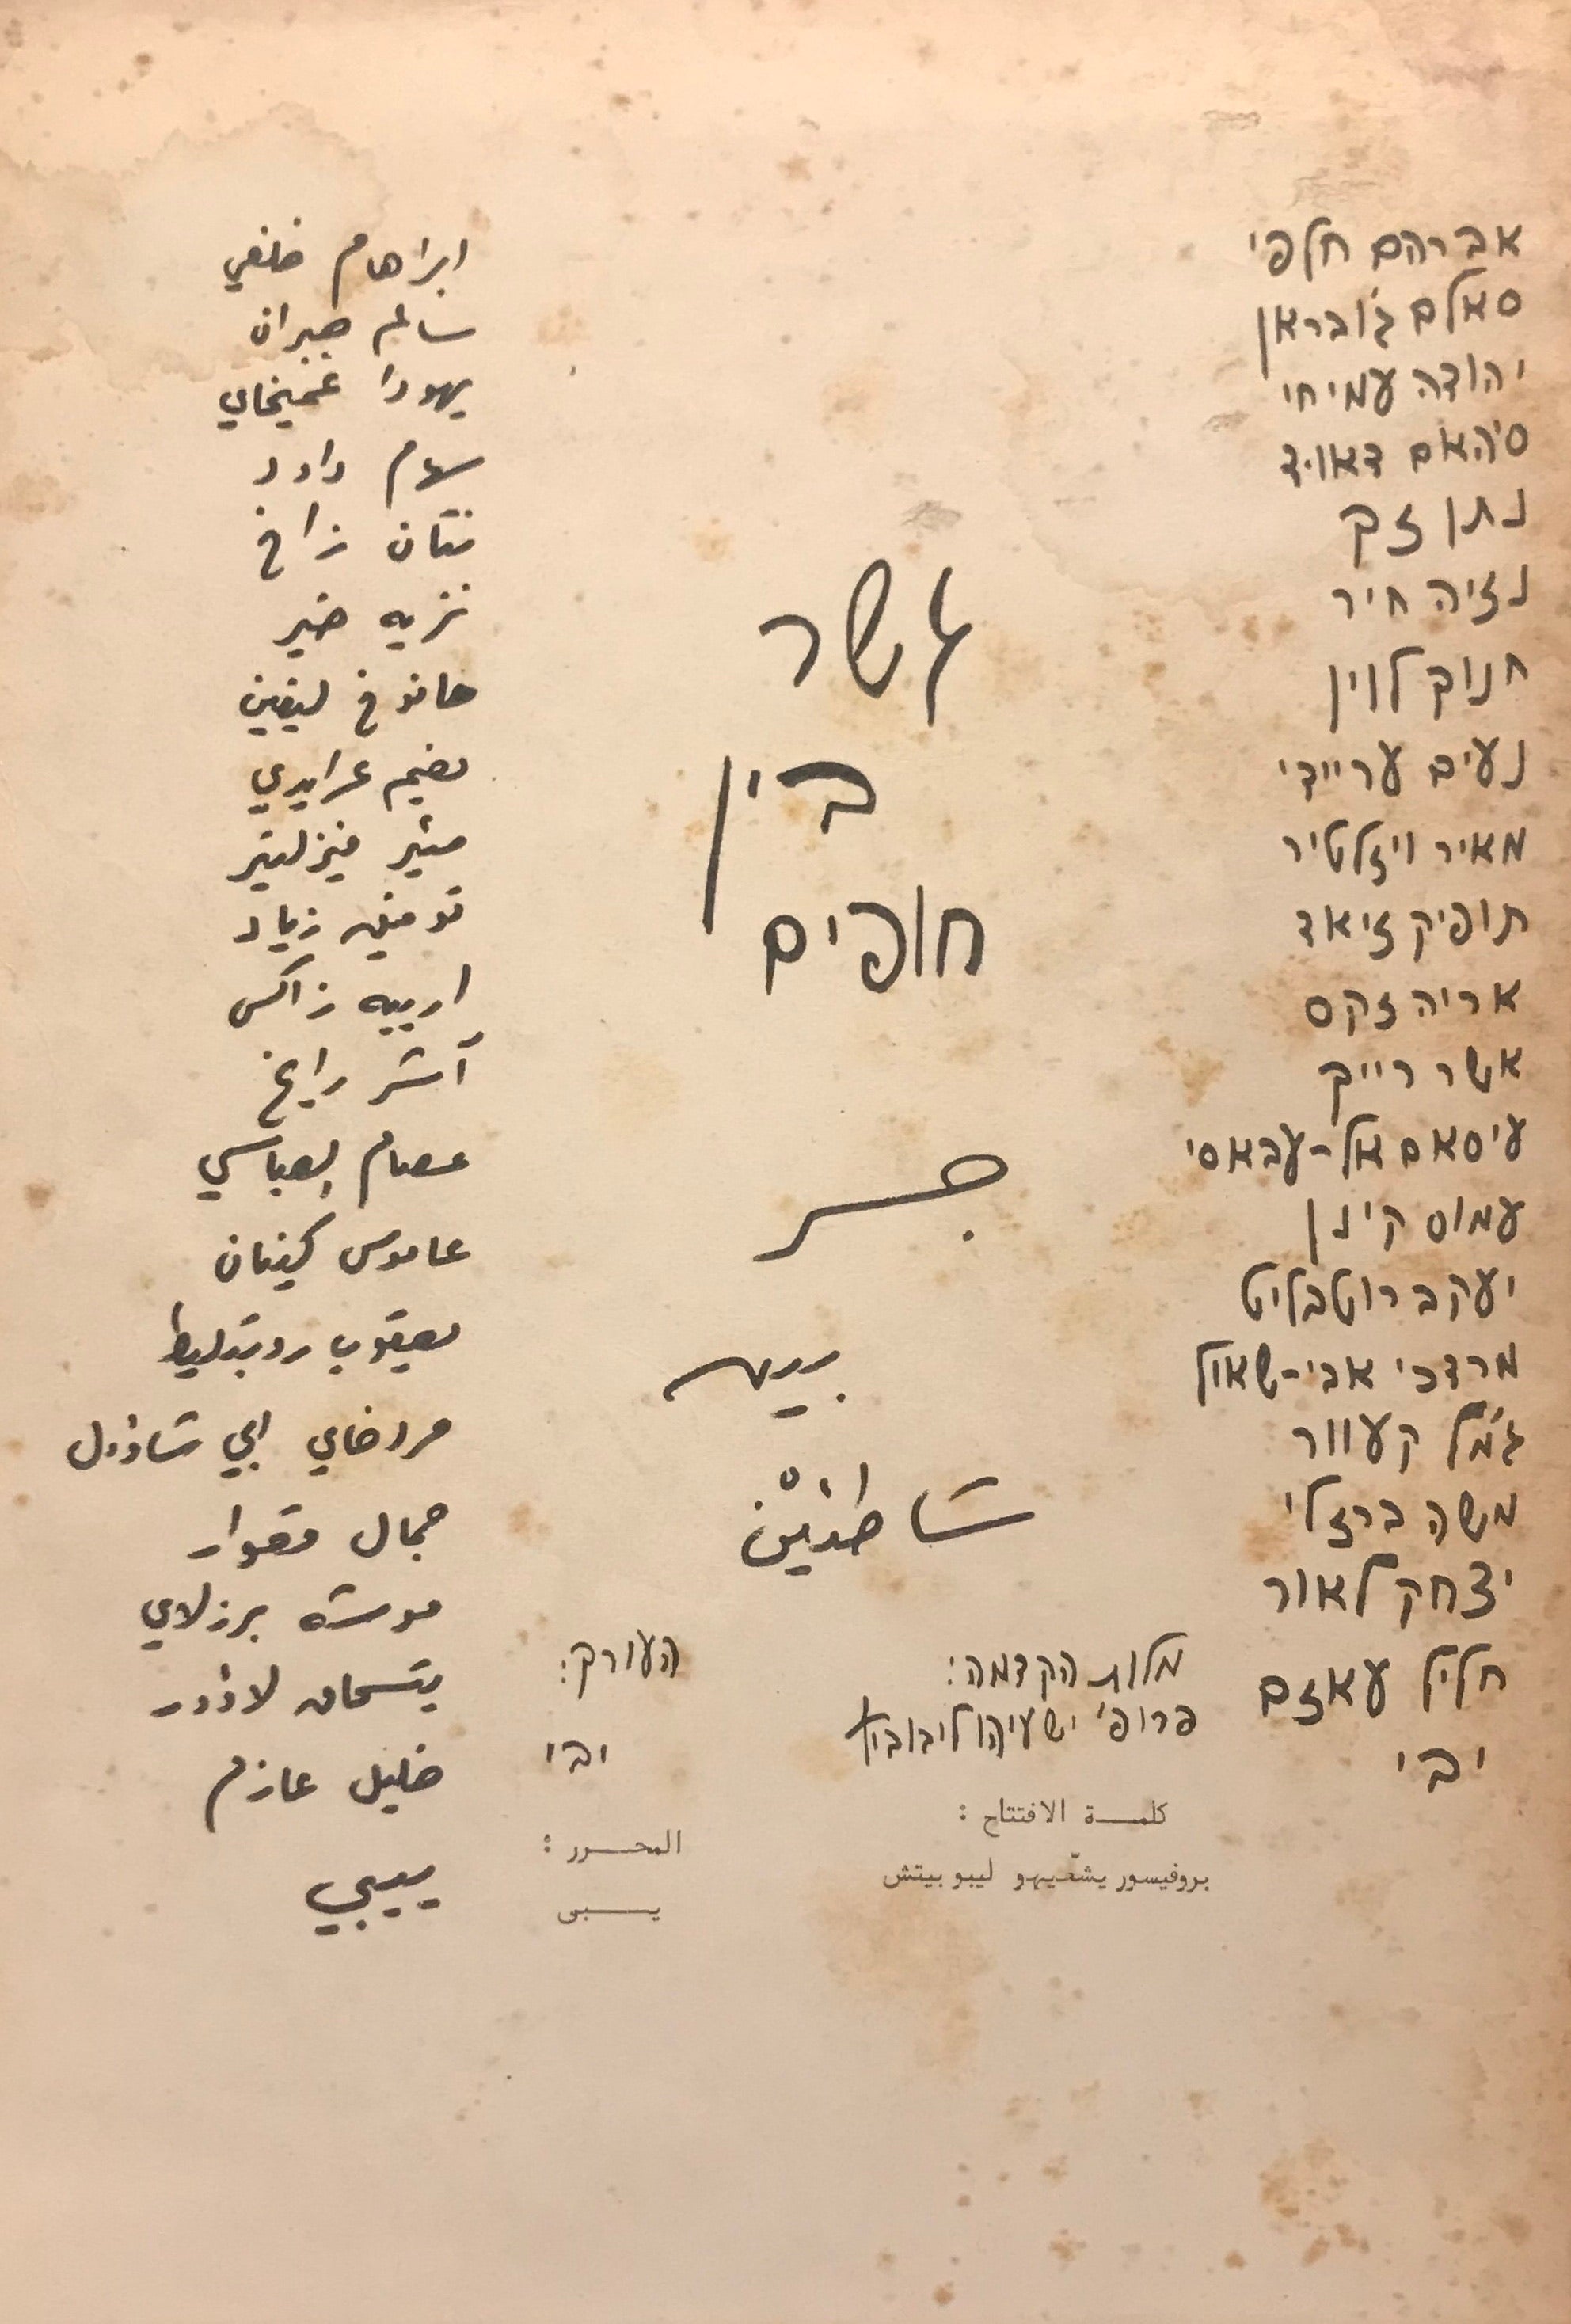 אברהם חלפי
סאלם ג'ובראן
יהודה עמיחי
סיהאם דאוד
נתן זך
נזיה חיר
חנוך לוין
נעים עריידי
מאיר ויזלטיר
תופיק זיאד
אריה זקס
אשר רייך
עיסאם אל-עבאסי
עמוס קינן
יעקב רוטבליט
מרדכי אבי-שאול
ג'מל קעוור
משה ברזלי
יצחק לאור
חליל עאזם
יבי
גשר
בין
חופים
جسر
بين
شاطئين
ابراهام خلفي
سالم جبران
يهودا عميخاي
سهام داود
نتان زاخ
نزيه خير
حانوخ ليفين
نعيم عرايدي
مئير فيزلتير
توفيق زياد
ارييه زاكس
آشر رايخ
عصام العباسي
عاموس كينان
يعقوب روتبليط
مردخاي ابي شاؤول
جمال قعوار
موشه برزلاي
يتسحاق لاؤور
خليل عازم
ييبي
מלות הקדמה:
פרופ' ישעיהו ליבוביץ
كلمة الافتتاح :
بروفيسور يشعيهو ليبوبيتش
העורך:
יבי
المحرر :
يبى